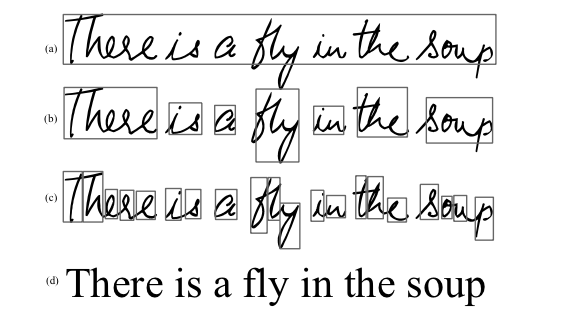 (a) There is a fly in the soup
(b) There is a fly in the soup
(c) There is a fly in the soup
(d) There is a fly in the soup